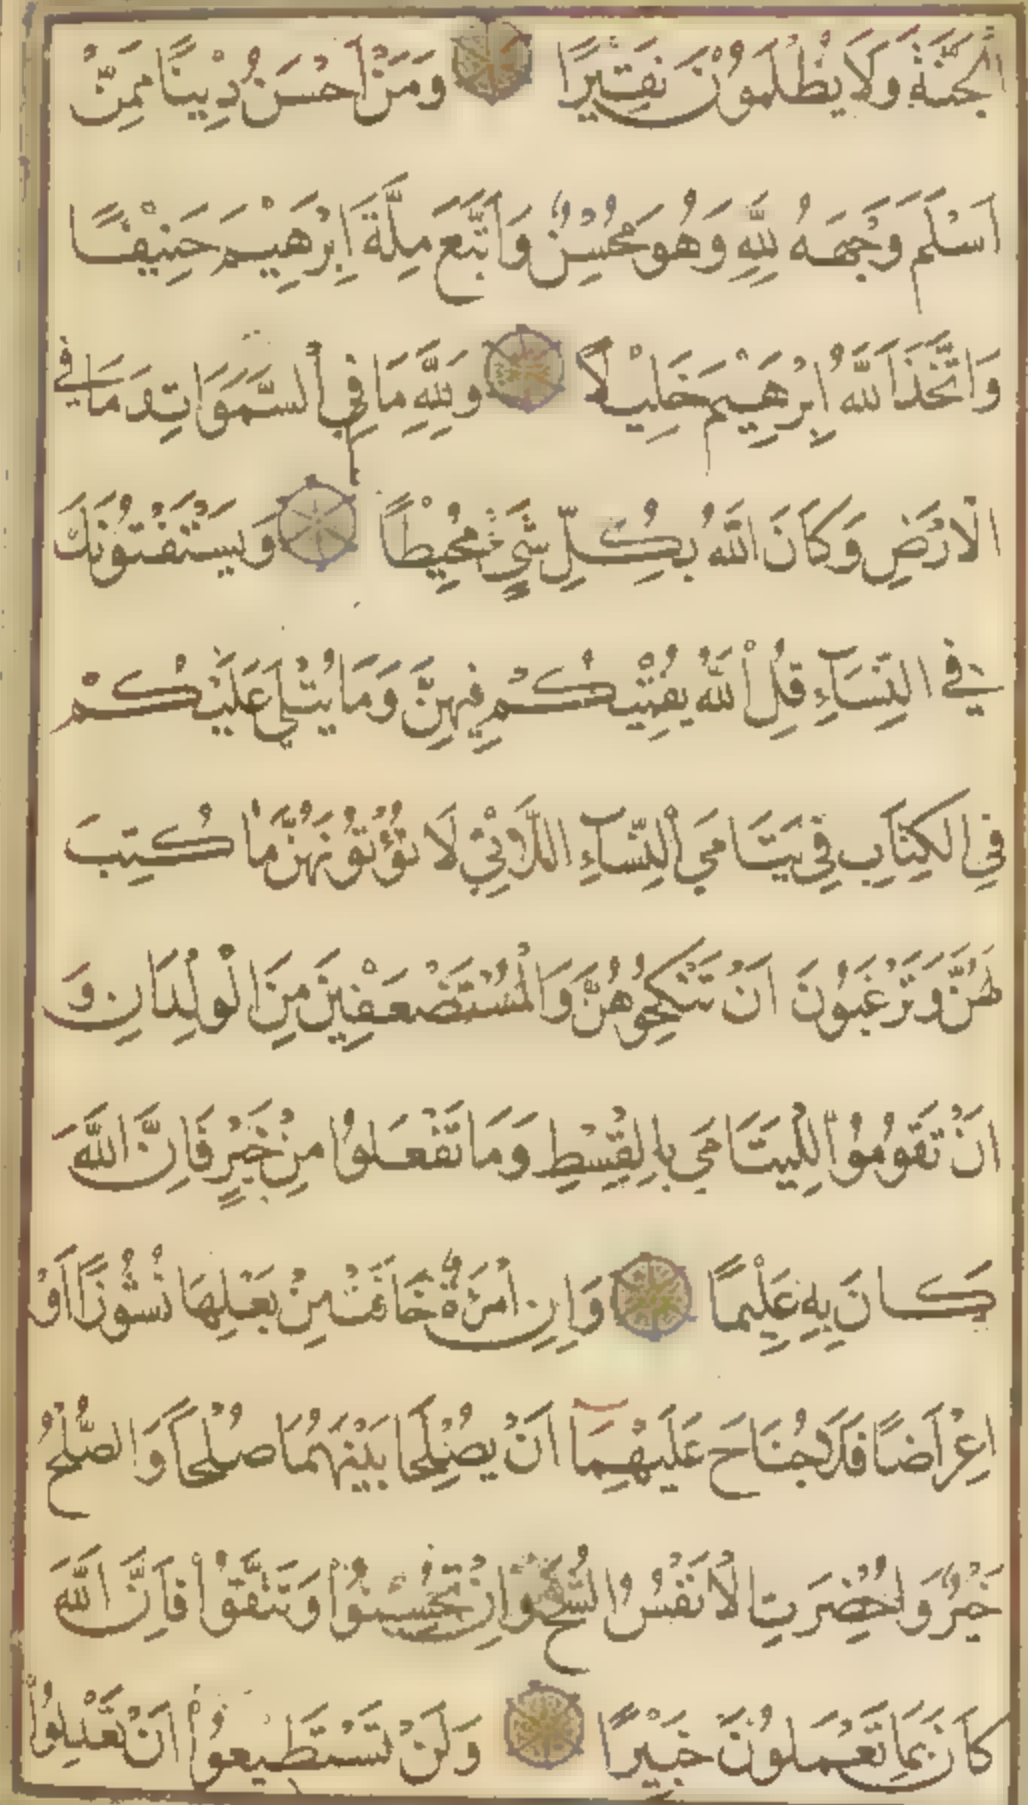 الْجَنَّةَ وَلَا يُظْلَمُوْنَ نَقِيْرًا وَمَنْ اَحْسَنُ دِيْنًا مِمَّنْ
اَسْلَمَ وَجْهَهُ لِلّٰهِ وَهُوَ مُحْسِنٌ وَاتَّبَعَ مِلَّةَ اِبْرٰهِيْمَ حَنِيْفًا
وَاتَّخَذَ اللّٰهُ اِبْرٰهِيْمَ خَلِيْلًا وَلِلّٰهِ مَا فِي السَّمَوَاتِ وَمَا فِي
الْاَرْضِ وَكَانَ اللّٰهُ بِكُلِّ شَيْءٍ مُحِيْطًا وَيَسْتَفْتُوْنَكَ
فِي النِّسَآءِ قُلِ اللّٰهُ يُفْتِيْكُمْ فِيْهِنَّ وَمَا يُتْلٰى عَلَيْكُمْ
فِي الْكِتَابِ فِي يَتَامَى النِّسَآءِ اللَّاتِيْ لَا تُؤْتُوْنَهُنَّ مَا كُتِبَ
لَهُنَّ وَتَرْغَبُوْنَ اَنْ تَنْكِحُوْهُنَّ وَالْمُسْتَضْعَفِيْنَ مِنَ الْوِلْدَانِ وَ
اَنْ تَقُوْمُوْا لِلْيَتَامَى بِالْقِسْطِ وَمَا تَفْعَلُوْا مِنْ خَيْرٍ فَاِنَّ اللّٰهَ
كَانَ بِهِ عَلِيْمًا وَاِنِ امْرَةٌ خَافَتْ مِنْ بَعْلِهَا نُشُوْزًا اَوْ
اِعْرَاضًا فَلَا جُنَاحَ عَلَيْهِمَآ اَنْ يُصْلِحَا بَيْنَهُمَا صُلْحًا وَالصُّلْحُ
خَيْرٌ وَاُحْضِرَتِ الْاَنْفُسُ الشُّحَّ وَاِنْ تُحْسِنُوْا وَتَتَّقُوْا فَاِنَّ اللّٰهَ
كَانَ بِمَا تَعْمَلُوْنَ خَبِيْرًا وَلَنْ تَسْتَطِيْعُوْا اَنْ تَعْدِلُوْا